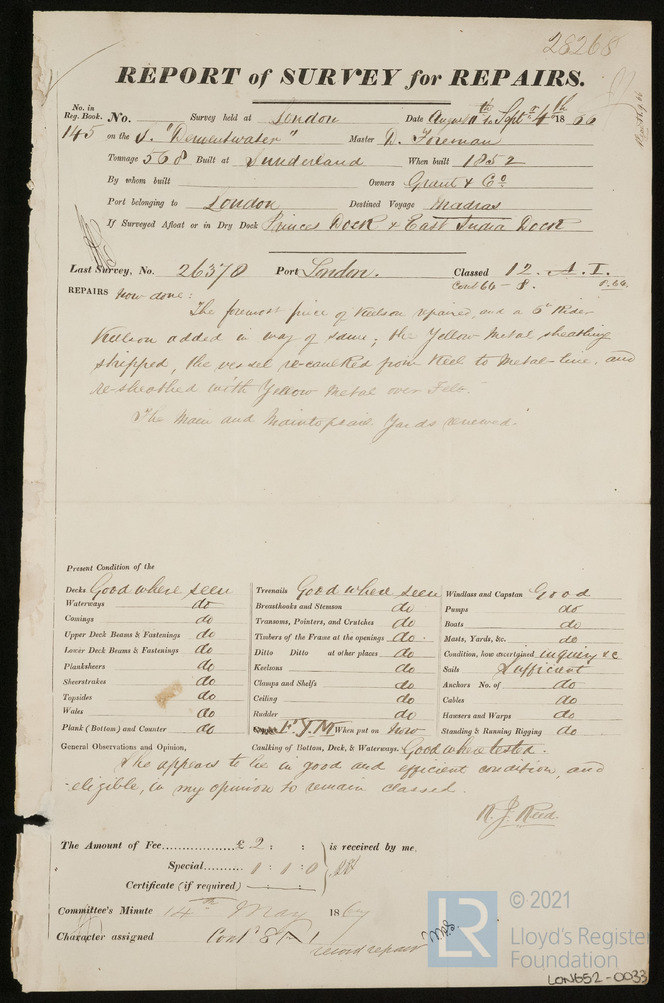 28268
REPORT of SURVEY for REPAIRS.
No. in Reg. Book. No. Survey held at London Date August 11th to Sept 4th 1866
145 on the S. "Derwentwater" Master D. Foreman
Tonnage 568 Built at Sunderland When built 1852
By whom built Owners Grant & Co.
Port belonging to London Destined Voyage Madras
If Surveyed Afloat or in Dry Dock Princes Dock & East India Dock
Last Survey, No. 26370 Port London. Classed 12. A. 1.
Cont 64 - 8.
REPAIRS now done:
The foremost piece of Keelson repaired, and a 6 Rider
Keelson added in way of same; the Yellow Metal sheathing
stripped, the vessel re-caulked from Keel to Metal-line, and
re-sheathed with Yellow Metal over Felt.
The Main and Maintopsail Yards renewed.
Present Condition of the
Decks Good where seen
Waterways do
Comings do
Upper Deck Beams & Fastenings do
Lower Deck Beams & Fastenings do
Planksheers do
Sheerstrakes do
Topsides do
Wales do
Plank (Bottom) and Counter do
Treenails Good where seen
Breasthooks and Stemson do
Transoms, Pointers, and Crutches do
Timbers of the Frame at the openings do.
Ditto Ditto at other places do
Keelsons do
Clamps and Shelfs do
Ceiling do
Rudder do
F.Y.M. When put on Now
Windlass and Capstan Good
Pumps do
Boats do
Masts, Yards, &c. do
Condition, how ascertained inquiry &c
Sails Sufficient
Anchors No. of do
Cables do
Hawsers and Warps do
Standing & Running Rigging do
General Observations and Opinion, Caulking of Bottom, Deck, & Waterways. Good where tested.
She appears to be in good and efficient condition, and
eligible, in my opinion to remain classed.
R. J. Reed.
The Amount of Fee £ 2 : : is received by me,
Special 1 : 1 : 0
Certificate (if required) :
Committee's Minute 14th May 1867
Character assigned Cont 8 A 1
record repairs
© 2021
LR
Lloyd's Register
Foundation
LON652-0033